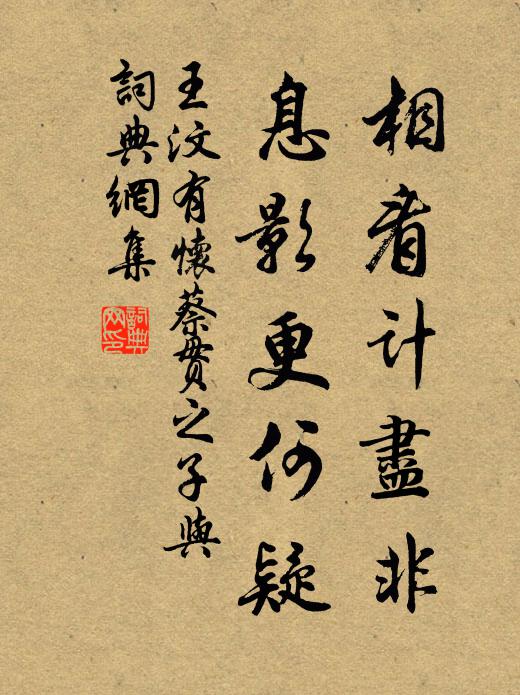 相看計盡非
息影更何疑
王汶有懷蔡貫之子與
詞典網集
詞典网印